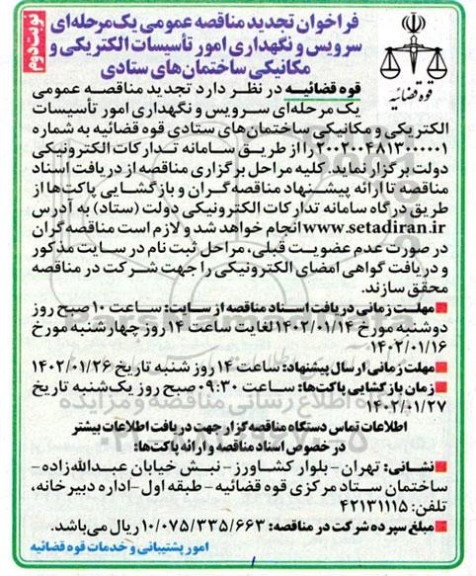 نوبت دوم
فراخوان تجدید مناقصه عمومی یک مرحله‌ای
سرویس و نگهداری امور تأسیسات الکتریکی و
مکانیکی ساختمان‌های ستادی
قوه قضائیه
قوه قضائیـه در نظـر دارد تجدیـد مناقصـه عمومی
یک مرحله‌ای سـرویس و نگهـداری امـور تأسیسـات
الکتریکی و مکانیکی ساختمان‌های ستادی قوه قضائیه به شماره
۲۰۰۲۰۰۴۸۱۳۰۰۰۰۰۱ را از طریـق سـامانه تـدارکات الکترونیکی
دولت برگزار نماید. کلیه مراحل برگزاری مناقصه از دریافت اسناد
مناقصه تا ارائه پیشنهاد مناقصه‌گران و بازگشایی پاکت‌ها از
طریق درگاه سامانه تدارکات الکترونیکی دولت (ستاد) به آدرس
www.setadiran.ir انجام خواهد شد و لازم است مناقصه‌گران
در صورت عدم عضویت قبلی، مراحل ثبت نام در سایت مذکور
و دریافت گواهی امضای الکترونیکی را جهت شرکت در مناقصه
محقق سازند.
مهلـت زمانی دریافـت اسـناد مناقصه از سـایت: سـاعت ۱۰ صبح روز
دوشنبه مورخ ۱۴۰۲/۰۱/۱۴ لغایت ساعت ۱۴ روز چهارشنبه مورخ
۱۴۰۲/۰۱/۱۶
مهلت زمانی ارسال پیشنهاد: ساعت ۱۴ روز شنبه تاریخ ۱۴۰۲/۰۱/۲۶
زمان بازگشایی پاکت‌ها: ساعت ۰۹:۳۰ صبح روز یک‌شنبه تاریخ
۱۴۰۲/۰۱/۲۷
اطلاعات تماس دستگاه مناقصه‌گزار جهت دریافت اطلاعات بیشتر
در خصوص اسناد مناقصه و ارائه پاکت‌ها:
نشـانی: تهـران - بلـوار کشـاورز - نبـش خیابان عبـدالله‌زاده -
ساختمان ستاد مرکزی قوه قضائیه - طبقه اول - اداره دبیرخانه،
تلفن: ۴۲۱۳۱۱۱۵
مبلغ سپرده شرکت در مناقصه: ۱۰/۰۷۵/۳۳۵/۶۶۳ ریال می‌باشد.
امور پشتیبانی و خدمات قوه قضائیه